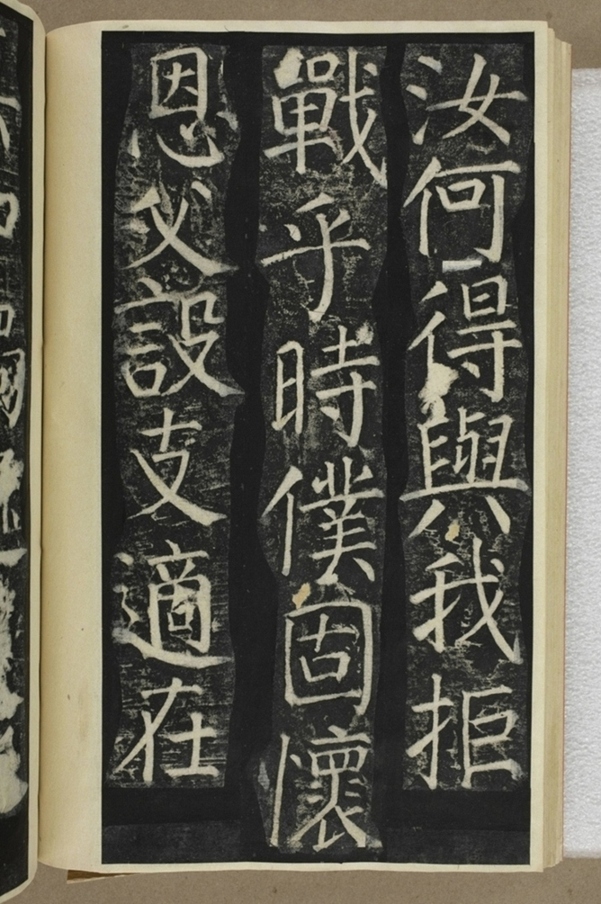 汝何得與我拒
戰乎時僕固懷
恩父設支適在